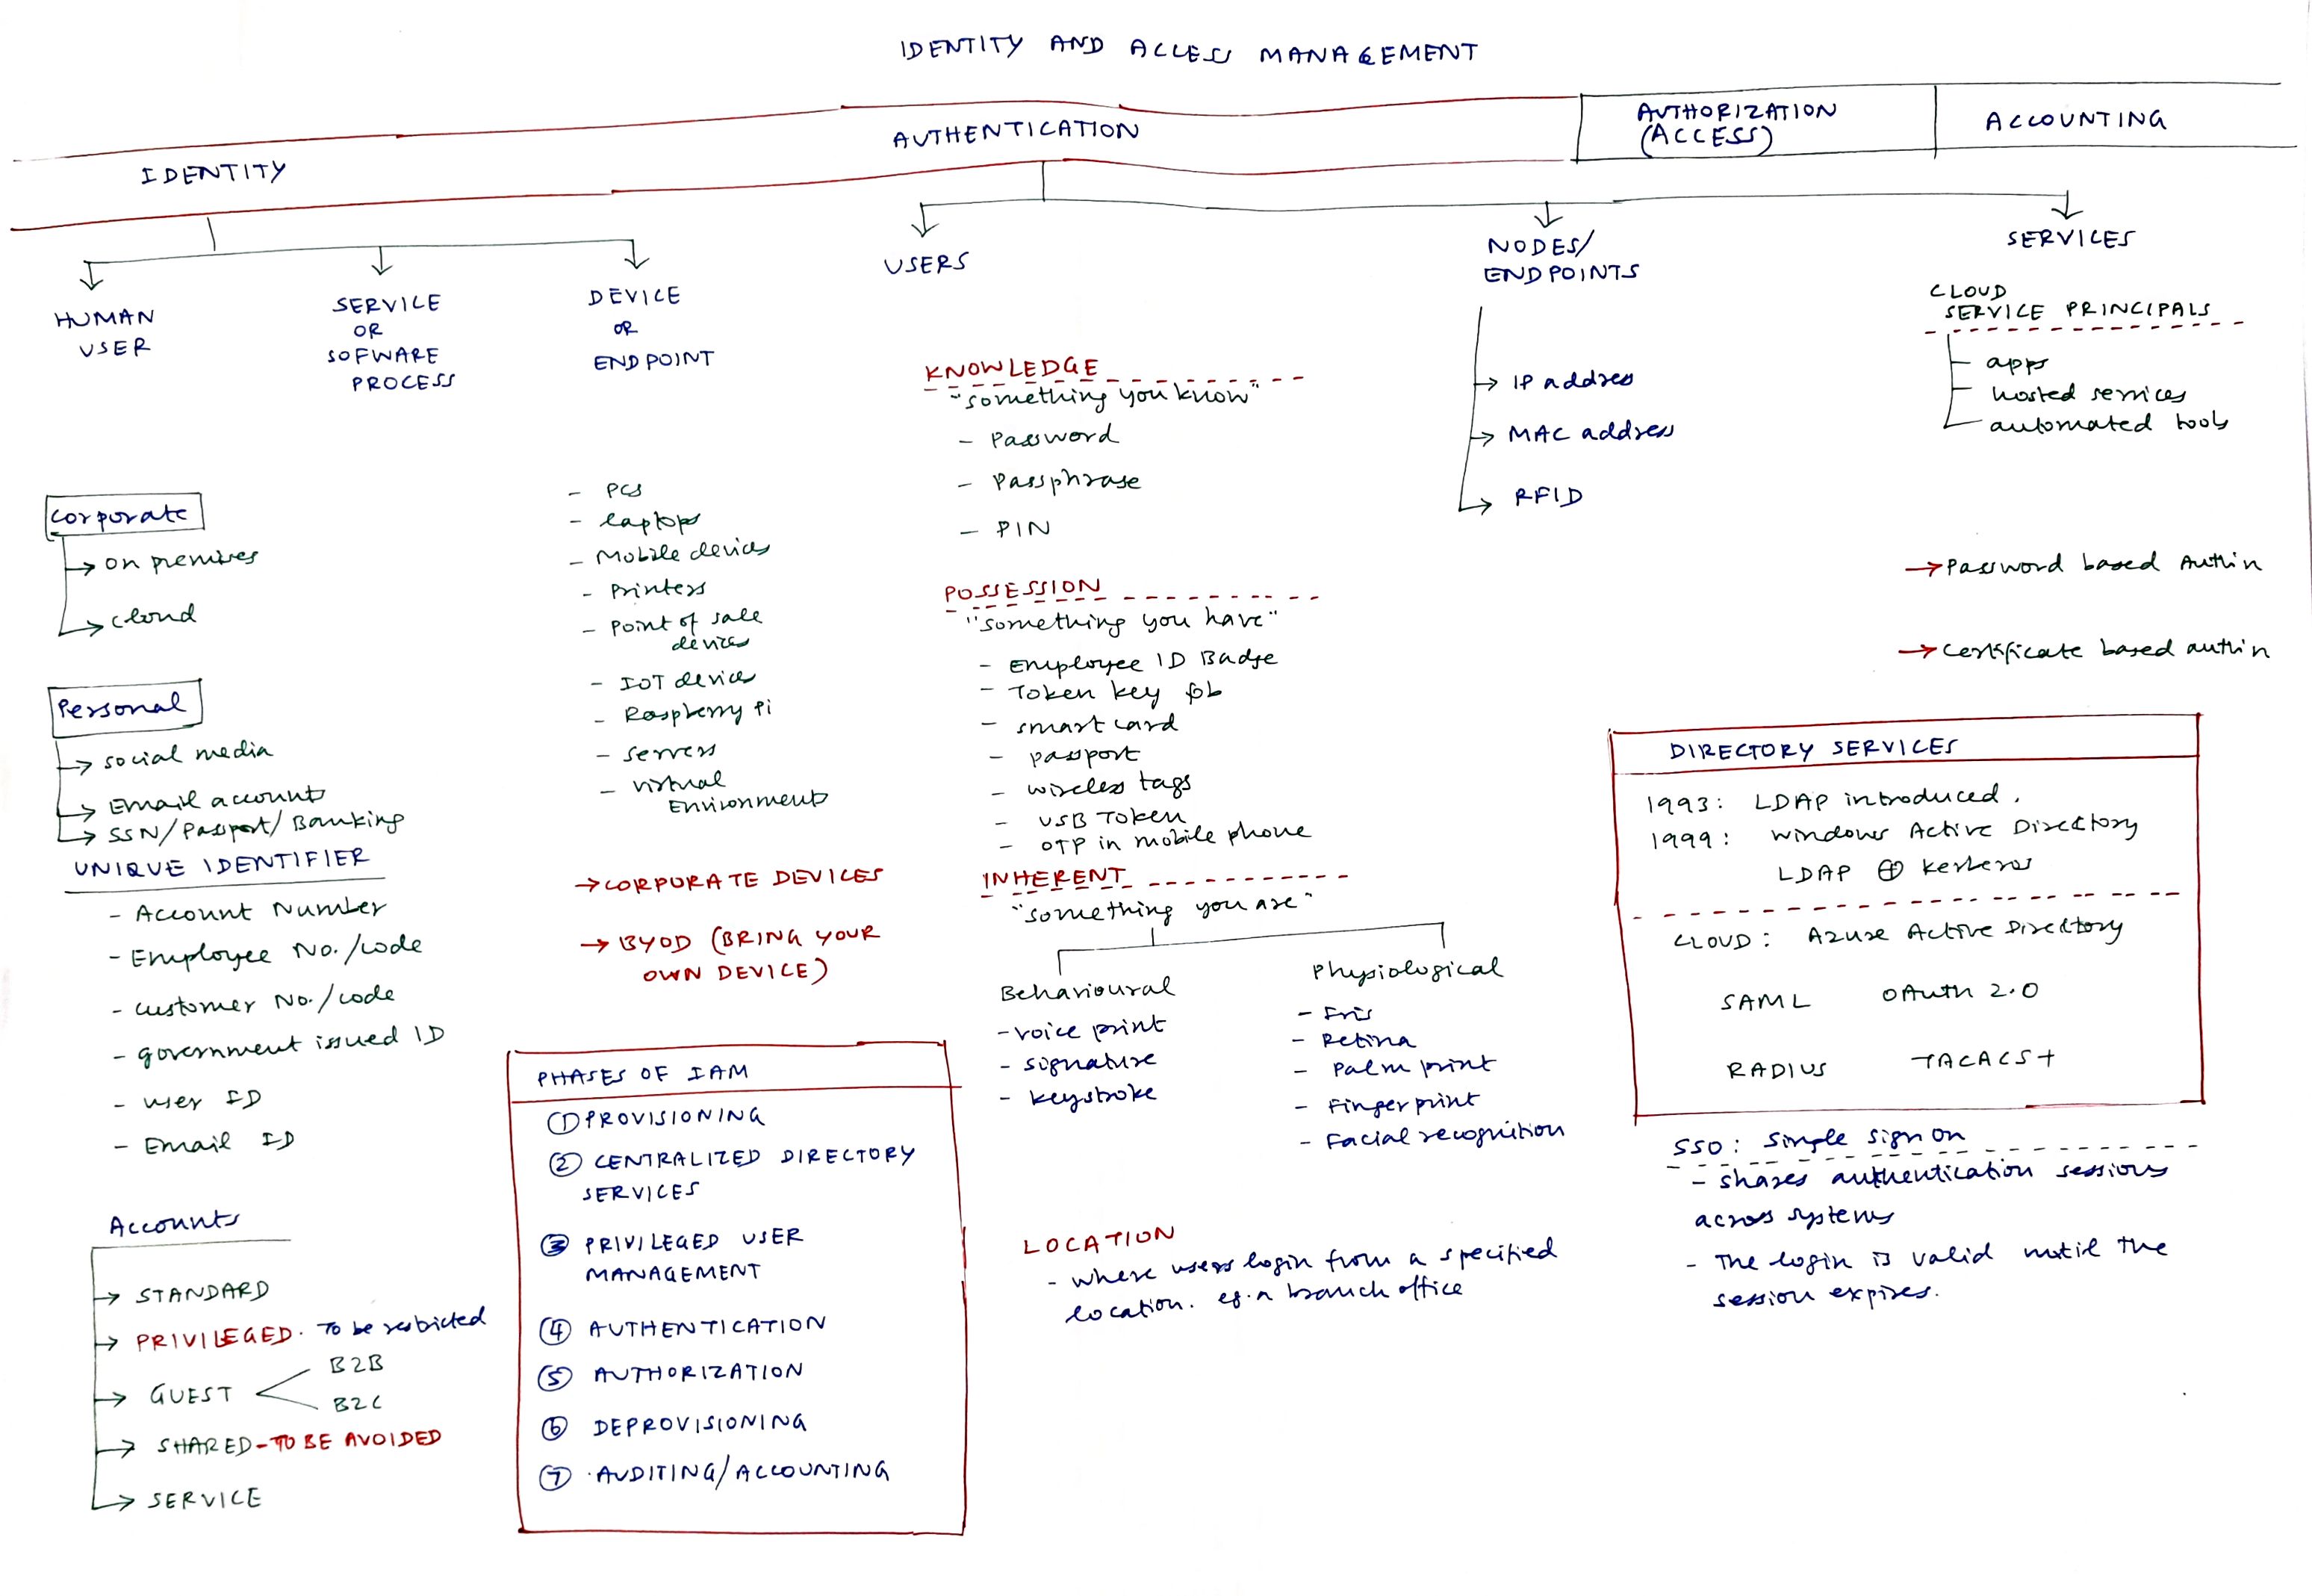 IDENTITY AND ACCESS MANAGEMENT
IDENTITY
AUTHENTICATION
AUTHORIZATION
(ACCESS)
ACCOUNTING
HUMAN
USER
SERVICE
OR
SOFWARE
PROCESS
DEVICE
OR
ENDPOINT
Corporate
→ On premises
→ cloud
Personal
→ social media
→ Email accounts
→ SSN/Passport/Banking
UNIQUE IDENTIFIER
- Account Number
- Employee No./code
- customer No./code
- government issued ID
- user ID
- Email ID
Accounts
→ STANDARD
→ PRIVILEGED. To be restricted
→ GUEST
B2B
B2C
→ SHARED - TO BE AVOIDED
→ SERVICE
- PCs
- laptops
- Mobile devices
- Printers
- Point of sale
devices
- IOT devices
- Raspberry Pi
- servers
- virtual
Environments
→ CORPORATE DEVICES
→ BYOD (BRING YOUR
OWN DEVICE)
PHASES OF IAM
① PROVISIONING
② CENTRALIZED DIRECTORY
SERVICES
③ PRIVILEGED USER
MANAGEMENT
④ AUTHENTICATION
⑤ AUTHORIZATION
⑥ DEPROVISIONING
⑦ AUDITING/ACCOUNTING
USERS
KNOWLEDGE
"something you know"
- Password
- Passphrase
- PIN
POSSESSION
"something you have"
- Employee ID Badge
- Token key fob
- smart card
- passport
- wireless tags
- USB Token
- OTP in mobile phone
INHERENT
"something you are"
Behavioural
- voice print
- signature
- keystroke
Physiological
- Iris
- Retina
- Palm print
- Fingerprint
- Facial recognition
LOCATION
- where users login from a specified
location. eg. a branch office
NODES/
ENDPOINTS
→ IP address
→ MAC address
→ RFID
SERVICES
CLOUD
SERVICE PRINCIPALS
apps
hosted services
automated tools
→ Password based Authin
→ Certificate based authin
DIRECTORY SERVICES
1993: LDAP introduced.
1999: Windows Active Directory
LDAP ⊕ Kerberos
CLOUD: Azure Active Directory
SAML OAuth 2.0
RADIUS TACACS+
SSO: Simple sign on
- shares authentication sessions
across systems
- The login is valid until the
session expires.